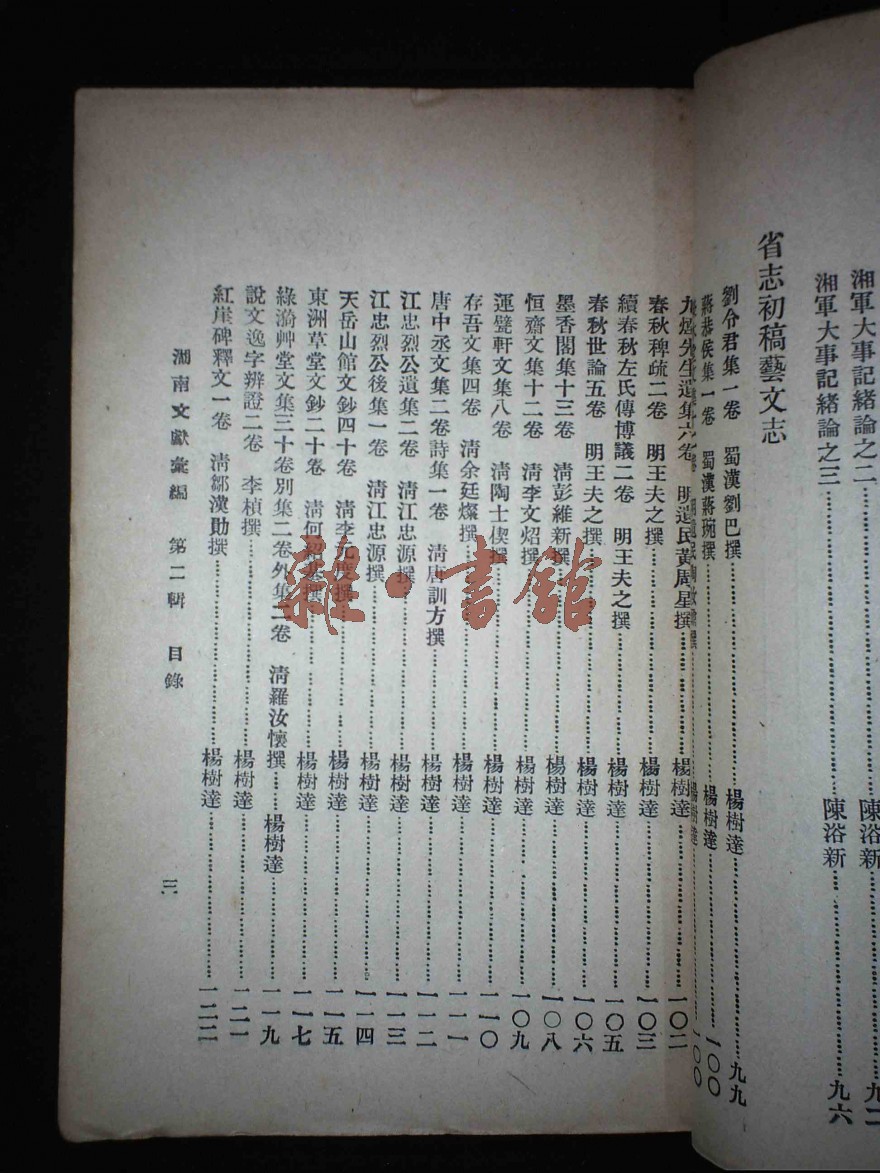 湘軍大事記緒論之二……陳浴新……九二
湘軍大事記緒論之三……陳浴新……九六
省志初稿藝文志
劉令君集一卷　蜀漢劉巴撰……楊樹達……九九
蔣恭侯集一卷　蜀漢蔣琬撰……楊樹達……一〇〇
楊樹達……一〇〇
九煙先生遺集六卷　明遺民黃周星撰……楊樹達……一〇二
春秋稗疏二卷　明王夫之撰……楊樹達……一〇三
續春秋左氏傳博議二卷　明王夫之撰……楊樹達……一〇五
春秋世論五卷　明王夫之撰……楊樹達……一〇六
墨香閣集十三卷　清彭維新撰……楊樹達……一〇八
恒齋文集十二卷　清李文炤撰……楊樹達……一〇九
運甓軒文集八卷　清陶士偰撰……楊樹達……一一〇
存吾文集四卷　清余廷燦撰……楊樹達……一一一
唐中丞文集二卷詩集一卷　清唐訓方撰……楊樹達……一一二
江忠烈公遺集二卷　清江忠源撰……楊樹達……一一三
江忠烈公後集一卷　清江忠源撰……楊樹達……一一四
天岳山館文鈔四十卷　清李元度撰……楊樹達……一一五
東洲草堂文鈔二十卷　清何紹基撰……楊樹達……一一七
綠漪艸堂文集三十卷別集二卷外集二卷　清羅汝懷撰……楊樹達……一一九
說文逸字辨證二卷　李楨撰……楊樹達……一二一
紅崖碑釋文一卷　清鄒漢勛撰……楊樹達……一二二
湖南文獻彙編　第二輯　目錄
三
雜·書館